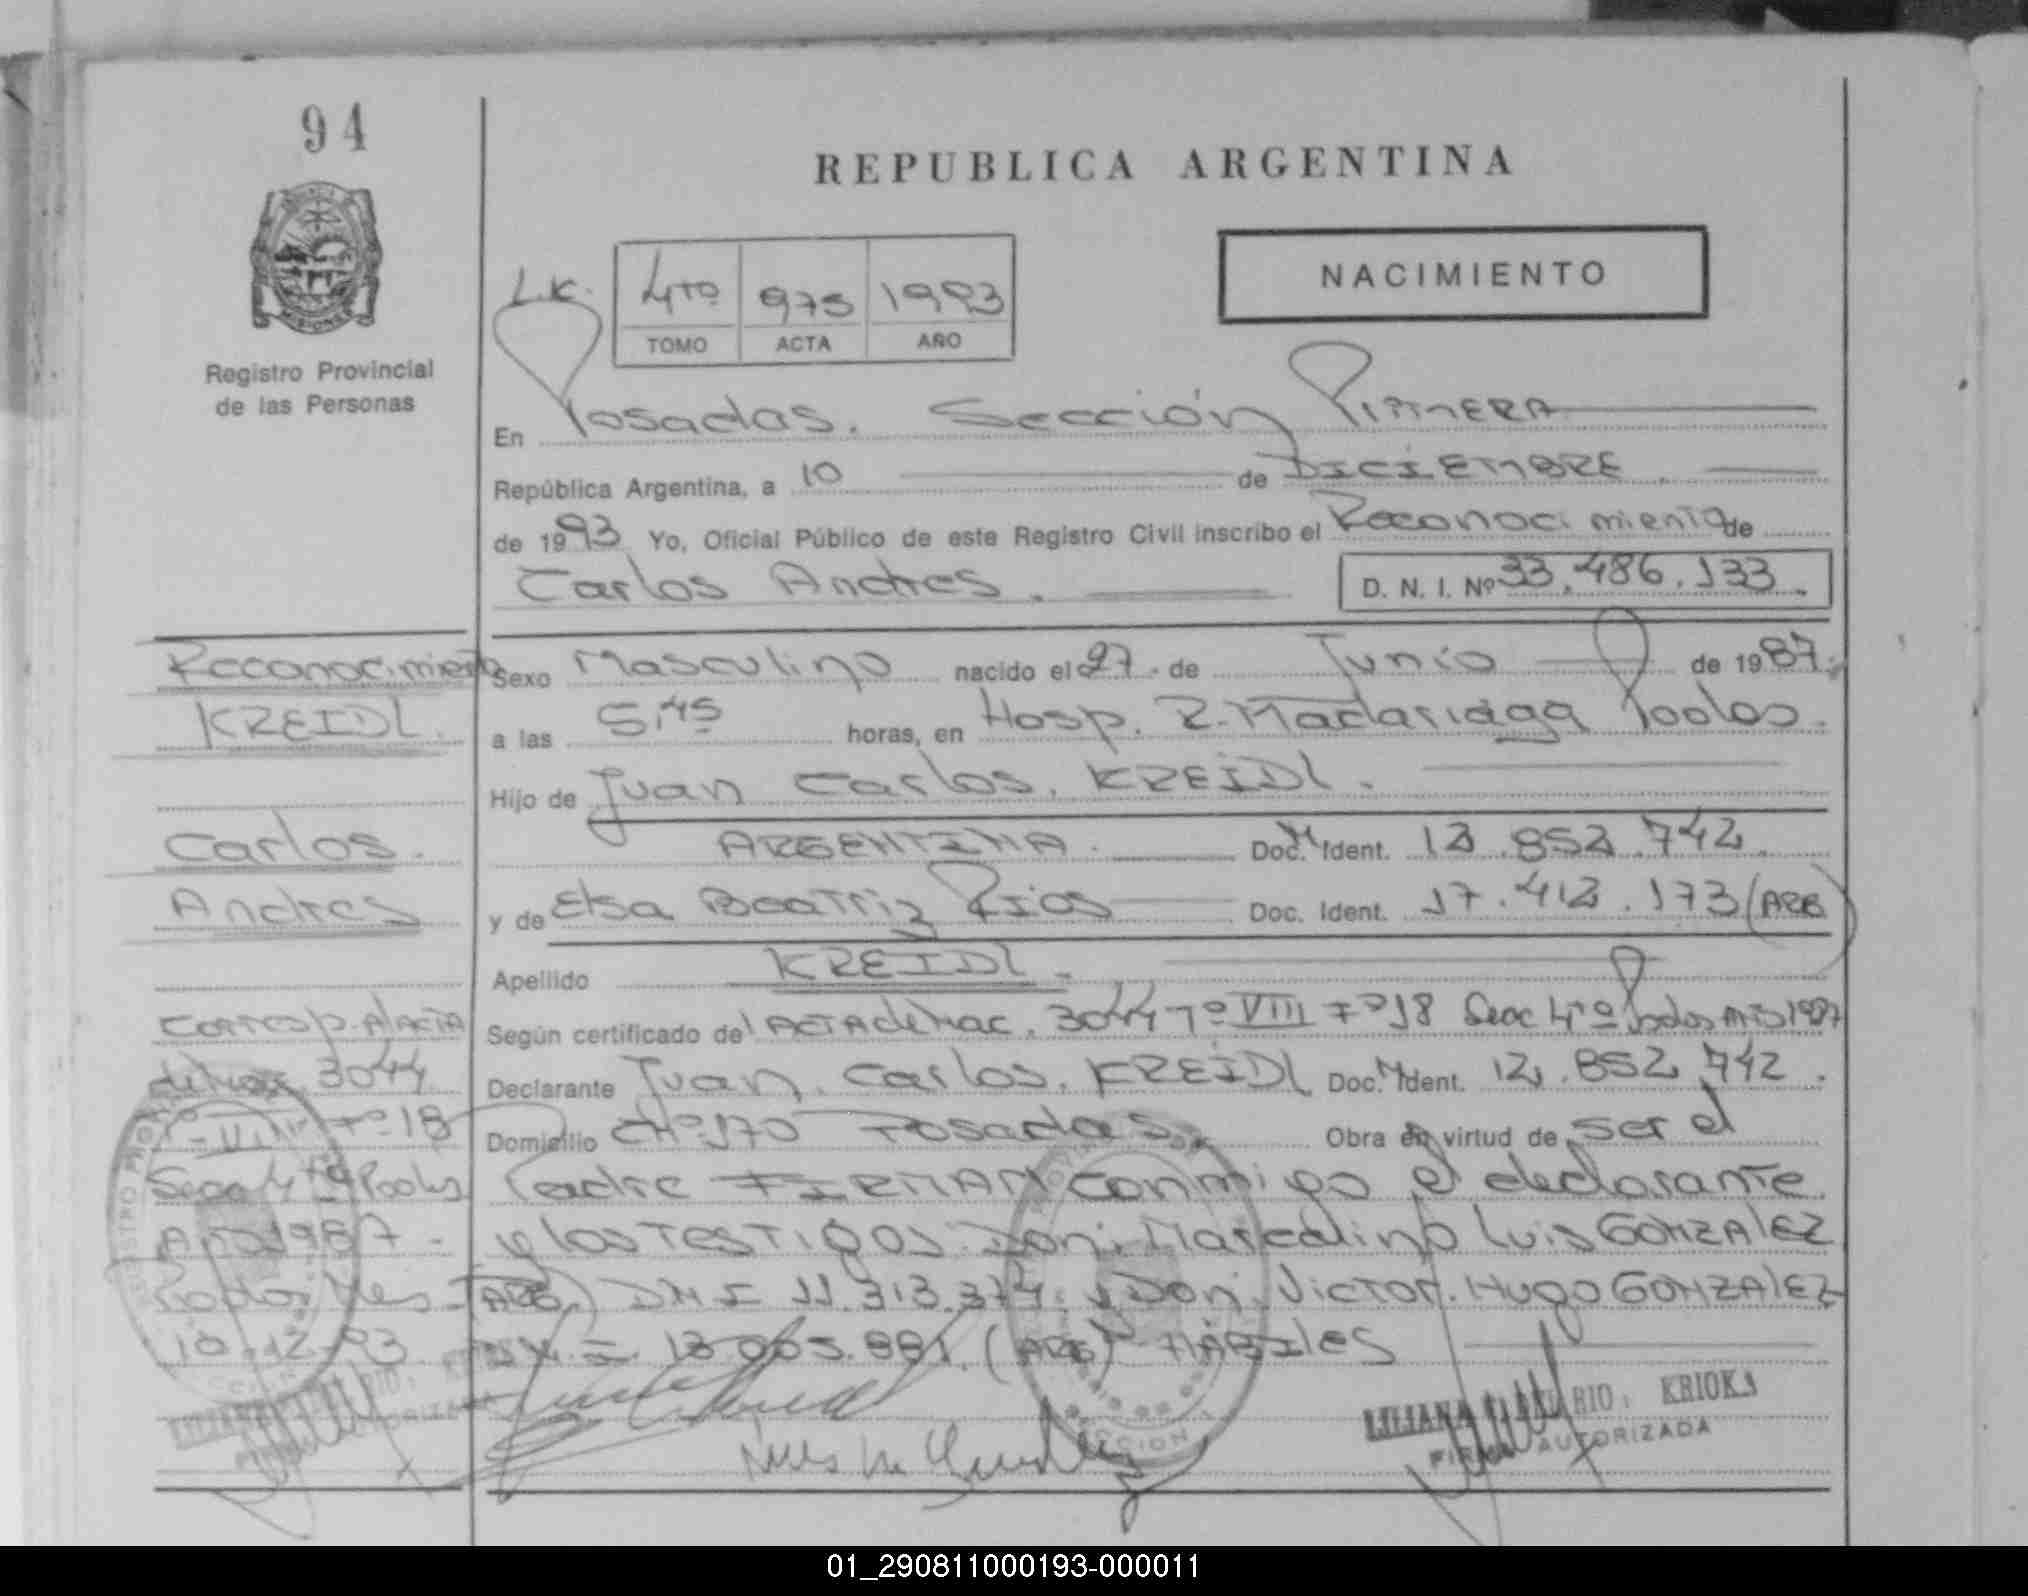 94
REPUBLICA ARGENTINA
NACIMIENTO
L.K.
4to 975 1993
TOMO ACTA AÑO
MISIONES
Registro Provincial
de las Personas
En Posadas. Sección Primera
República Argentina, a 10 de DICIEMBRE.
de 1993 Yo, Oficial Público de este Registro Civil inscribo el Reconocimiento de
Carlos Andres. D. N. I. Nº 33.486.133.
Sexo Masculino nacido el 27. de Junio de 1987.
a las 5,45 horas, en Hosp. R. Madariaga Posdas.
Hijo de Juan Carlos. KREIDL.
ARGENTINA. Doc. M Ident. 12.852.742.
y de Elsa Beatriz Rios Doc. Ident. 17.412.173 (ARG)
Apellido KREIDL.
Según certificado del ACTA de Nac. 3044 Tº VIII Fº 18 Secc 4tº Psdas 1987
Declarante Juan. Carlos. KREIDL Doc. M Ident. 12.852.742.
Domicilio CHº 170 Posadas. Obra en virtud de ser el
Padre FIRMAN conmigo el declarante
y los testigos: Don: Marcelino Luis GONZALEZ
(ARG) DNI 11.313.374. y Don. Victor. Hugo GONZALEZ
(ARG) HÁBILES
Reconocimiento
KREIDL.
Carlos.
Andres
Corresp. Al Acta
de Nac. 3044
Tº VIII Fº 18
Secc 4tº Psdas
AÑO 1987.
10.12.93
SECCION 1
LILIANA KRIOKA
FIRMA AUTORIZADA
01_290811000193-000011